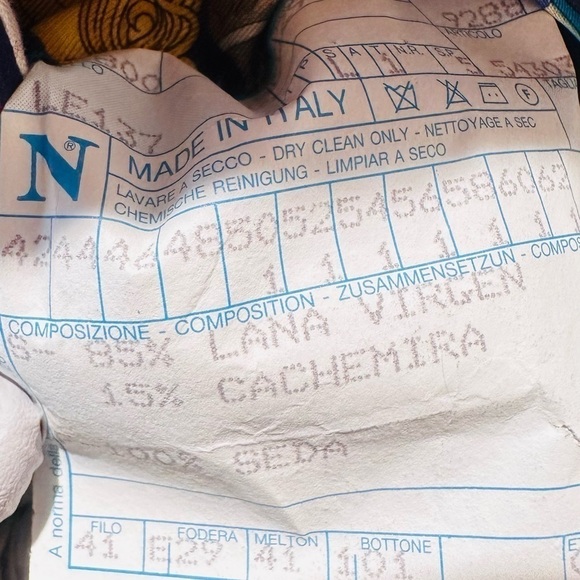 9288
ARTICOLO
300
S A T. N.R. S.P.
1 1 5 5A307
LE137
N®
MADE IN ITALY
F
LAVARE A SECCO - DRY CLEAN ONLY - NETTOYAGE A SEC
CHEMISCHE REINIGUNG - LIMPIAR A SECO
42 44 46 48 50 52 54 56 58 60 62
1 1 1 1 1 1 1
COMPOSIZIONE - COMPOSITION - ZUSAMMENSETZUN - COMPOS
S- 85% LANA VIRGEN
15% CACHEMIRA
100% SEDA
A norma dell
FILO FODERA MELTON BOTTONE
41 E29 41 101